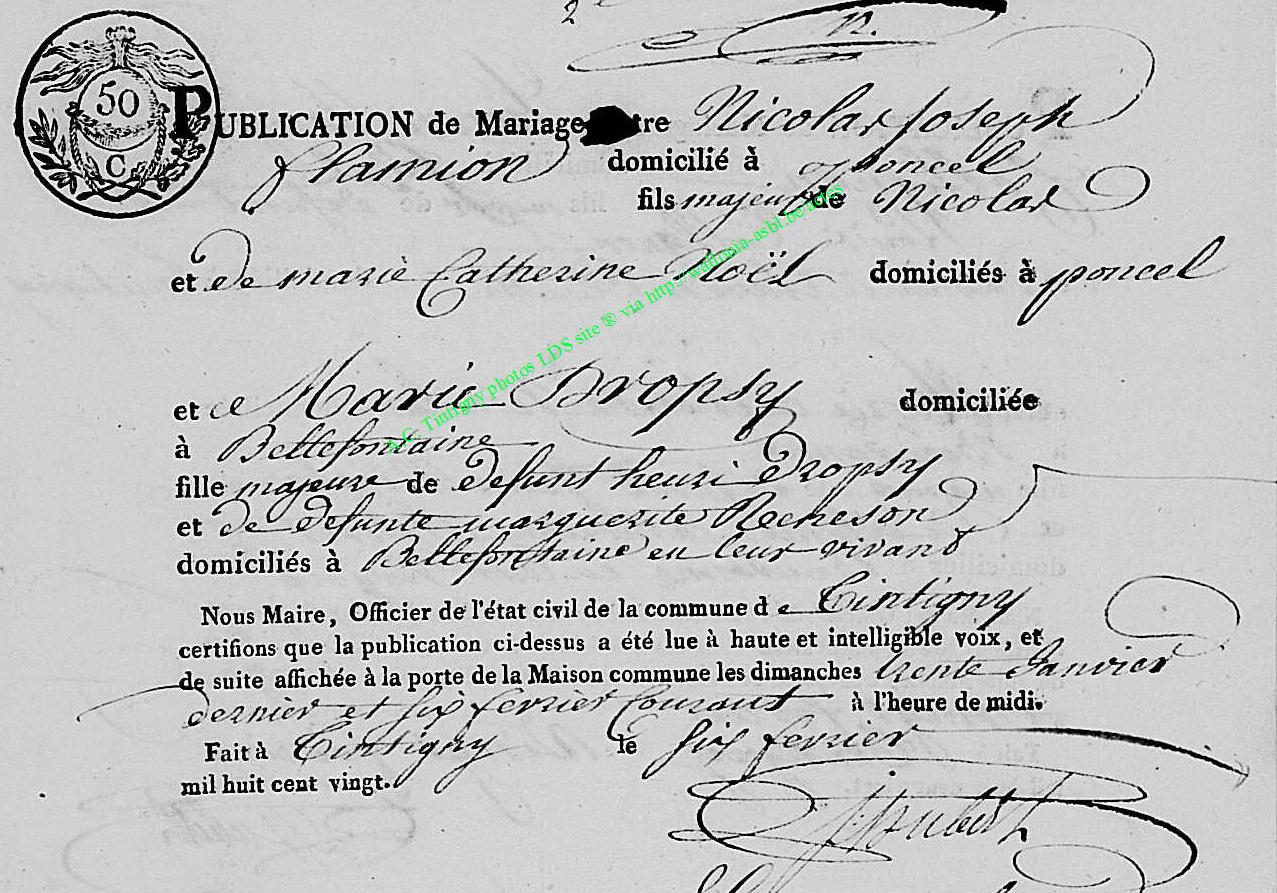 2e
N.
50
C
PUBLICATION de Mariage tre Nicolas Joseph
flamion domicilié à poncel
fils majeur de Nicolas
et de marie Catherine Noël domiciliés à poncel
et de Marie Dropsy domiciliée
à Bellefontaine
fille majeure de defunt henri Dropsy
et de defunte marguerite Recheson
domiciliés à Bellefontaine en leur vivant
Nous Maire, Officier de l'état civil de la commune de Tintigny
certifions que la publication ci-dessus a été lue à haute et intelligible voix, et
de suite affichée à la porte de la Maison commune les dimanches trente Janvier
dernier et six fevrier Courant à l'heure de midi.
Fait à Tintigny le six fevrier
mil huit cent vingt.
A.C. Tintigny photos LDS site ® via http://wallonia-asbl.be/actes